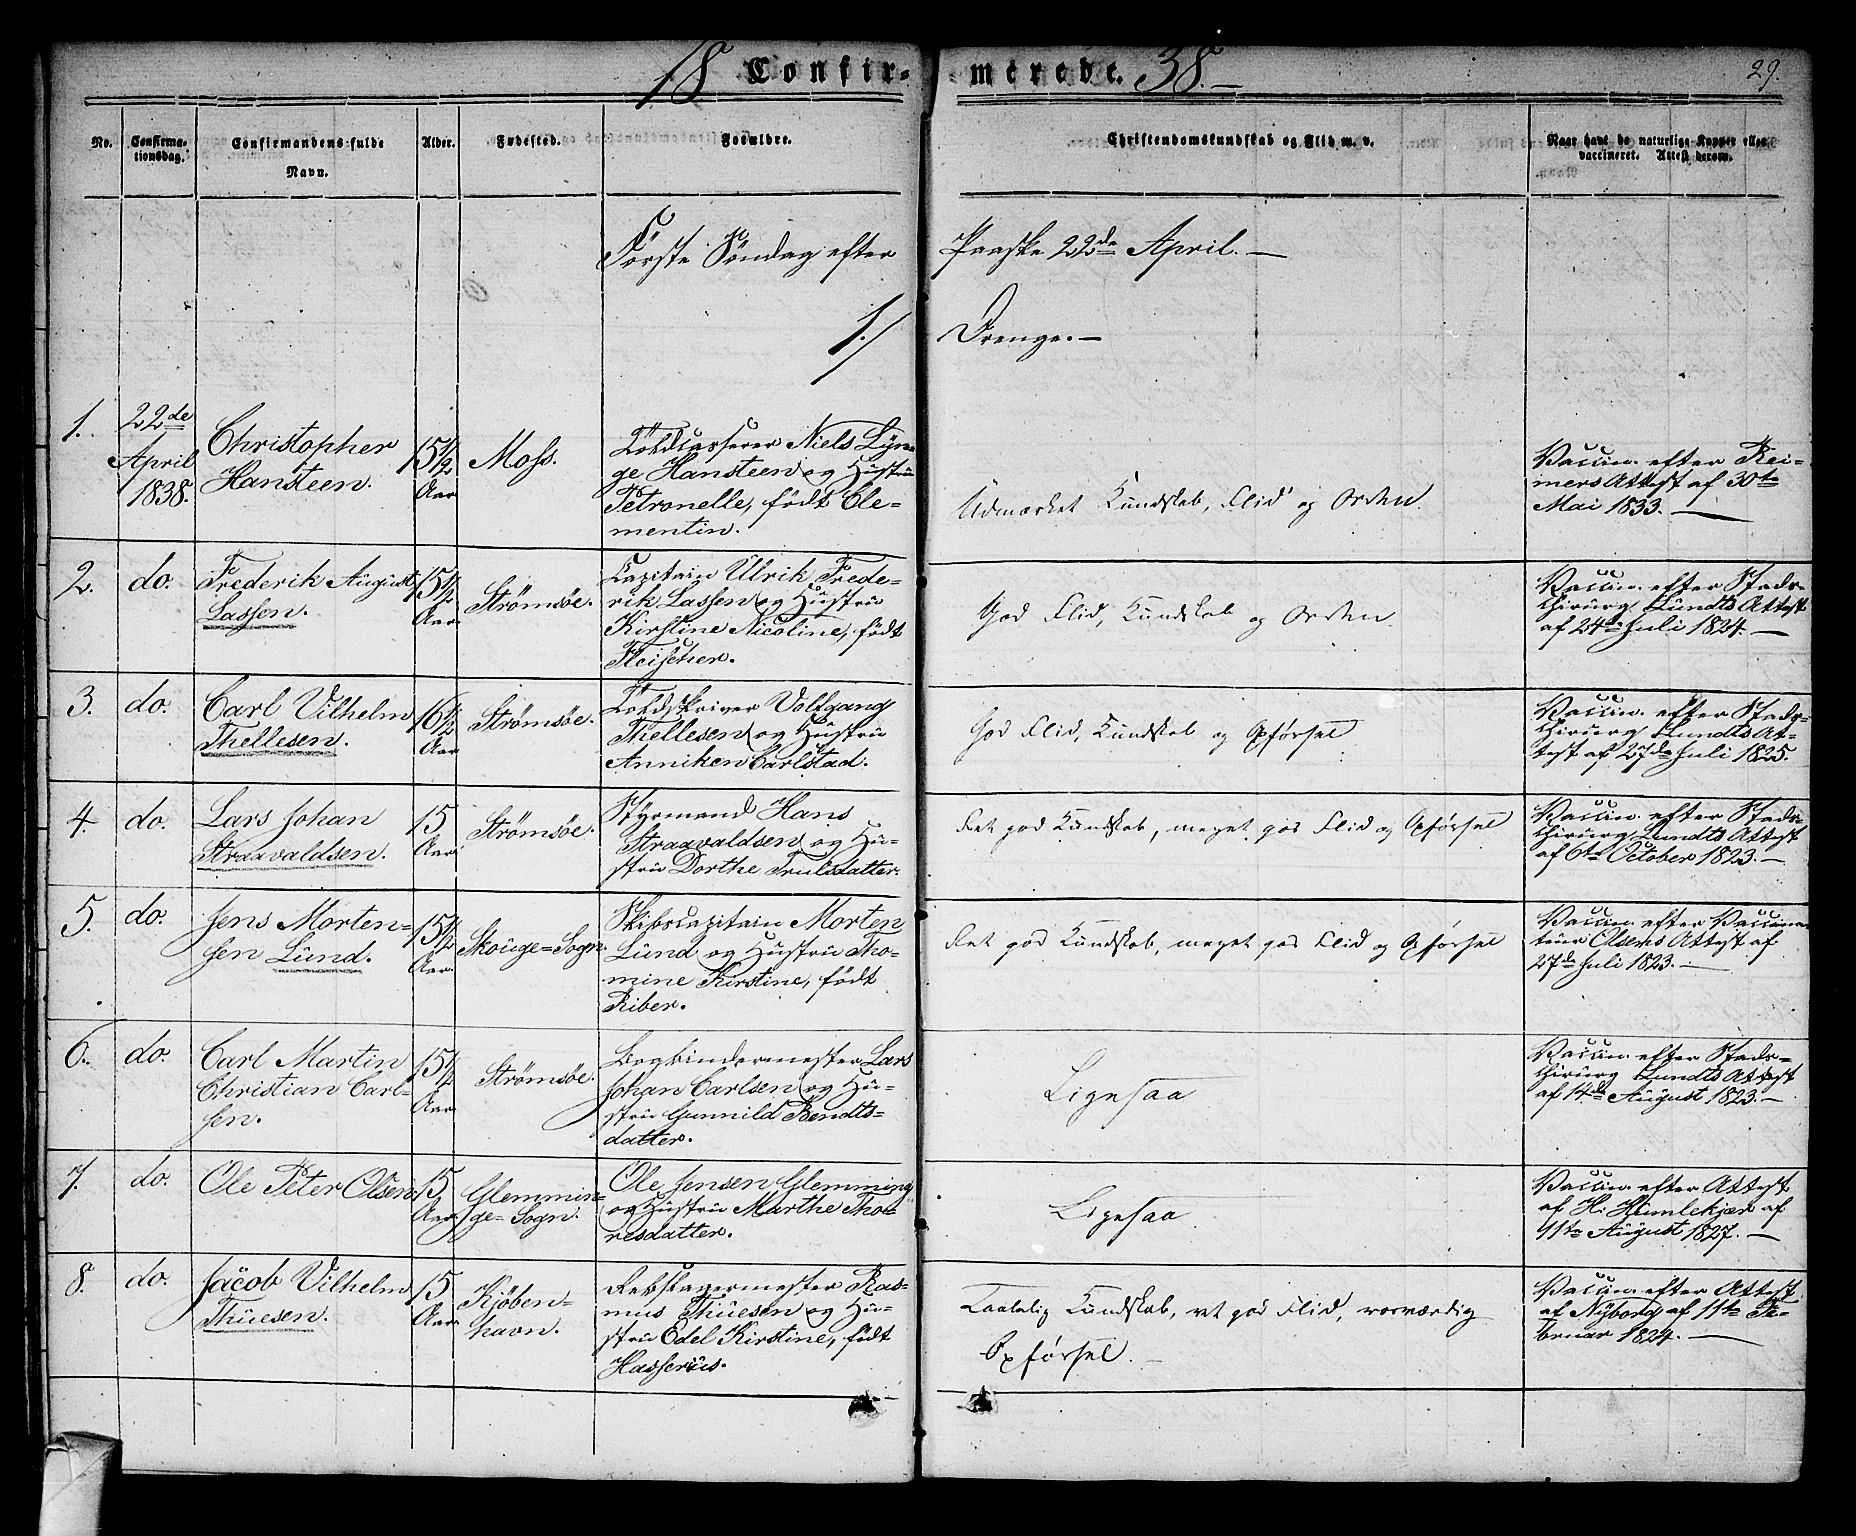 18 Confir-merede. 38.
29.
No.
Confirmationsdag.
Confirmandens fulde Navn.
Alder.
Fødested.
Forældre.
Christendomskundskab og Flid m. v.
Naar havt de naturlige Kopper eller vaccineret. Attest derom.
Første Søndag efter Paaske 22de April.
1./ Drenge.
1.
22de April 1838.
Christopher
Hansteen.
15 1/2 Aar
Moss.
Toldcasserer Niels Lyn-
ge Hansteen og Hustru
Petronelle, født Cle-
mentin.
Udmærket Kundskab, Flid og Orden.
Vaccin. efter Rei-
mers Attest af 30te
Mai 1833.
2.
do.
Frederik August
Lassen.
15 1/2 Aar
Strømsøe.
Capitain Ulrik Frede-
rik Lassen og Hustru
Kirstine Nicoline, født
Fleischer.
God Flid, Kundskab og Orden.
Vaccin. efter Stads-
chirurg Lundts Attest
af 24de Juli 1824.
3.
do.
Carl Vilhelm
Thellesen.
16 1/2 Aar
Strømsøe.
Toldskriver Volfgang
Thellesen og Hustru
Anniken Carlstad.
God Flid, Kundskab og Opførsel
Vaccin. efter Stads-
chirurg Lundts At-
test af 27de Juli 1825.
4.
do.
Lars Johan
Straavaldsen.
15 Aar
Strømsøe.
Styrmand Hans
Straavaldsen og Hu-
stru Dorthe Trulsdatter.
Ret god Kundskab, meget god Flid og Opførsel
Vaccin. efter Stads-
chirurg Lundts Attest
af 6te October 1823.
5.
do.
Jens Morten-
sen Lund.
15 1/2 Aar
Skouge=Sogn.
Skibscapitain Morten
Lund og Hustru Tho-
mine Kirstine, født
Riber.
Ret god Kundskab, meget god Flid og Opførsel
Vaccin. efter Vaccina-
teur Olsens Attest af
27de Juli 1823.
6.
do.
Carl Martin
Christian Carl-
sen.
15 1/2 Aar
Strømsøe.
Bogbindermester Lars
Johan Carlsen og Hu-
stru Gunnild Bendts-
datter.
Ligesaa
Vaccin. efter Stads-
chirurg Lundts Attest
af 14de August 1823.
7.
do.
Ole Peter Olsen
15 Aar
Glemmin-
ge=Sogn.
Ole Jensen Glemming
og Hustru Marthe Tho-
resdatter.
Ligesaa
Vaccin. efter Attest
af H. Himlekjær af
11te August 1827.
8.
do.
Jacob Vilhelm
Thuesen.
15 Aar
Kjøben-
havn.
Rebslagermester Ras-
mus Thuesen og Hu-
stru Edel Kirstine, født
Hasseriis.
Taalelig Kundskab, ret god Flid, rosværdig
Opførsel.
Vaccin. efter Attest
af Nyborg af 11te Fe-
bruar 1824.